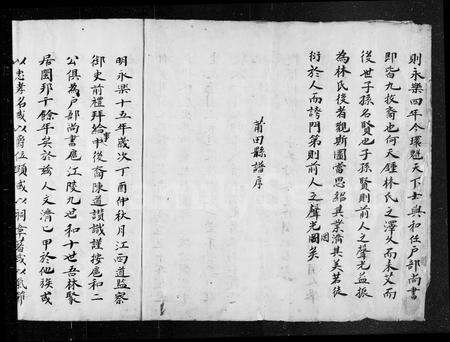 則永樂四年今環魁天下士與和任戶部尚書
即當九牧裔也何天鍾林氏之澤久而未艾而
後世子孫名賢也子孫賢則前人之聲光益振
為林氏後者觀斯圖當思紹其業濟其美若徒
衍於人而誇門第則前人之聲光圖矣
莆田縣譜序
明永樂十五年歲次丁酉仲秋月江西道監察
御史前禮科給事中後裔陳道讚識謹按扈和二
公俱為戶部尚書扈江陵九世和十世吾林聚
居國邦千餘年矣於茲人文濟乙甲於他族或
以忠孝名或以爵位顯或以詞章著或以氣節